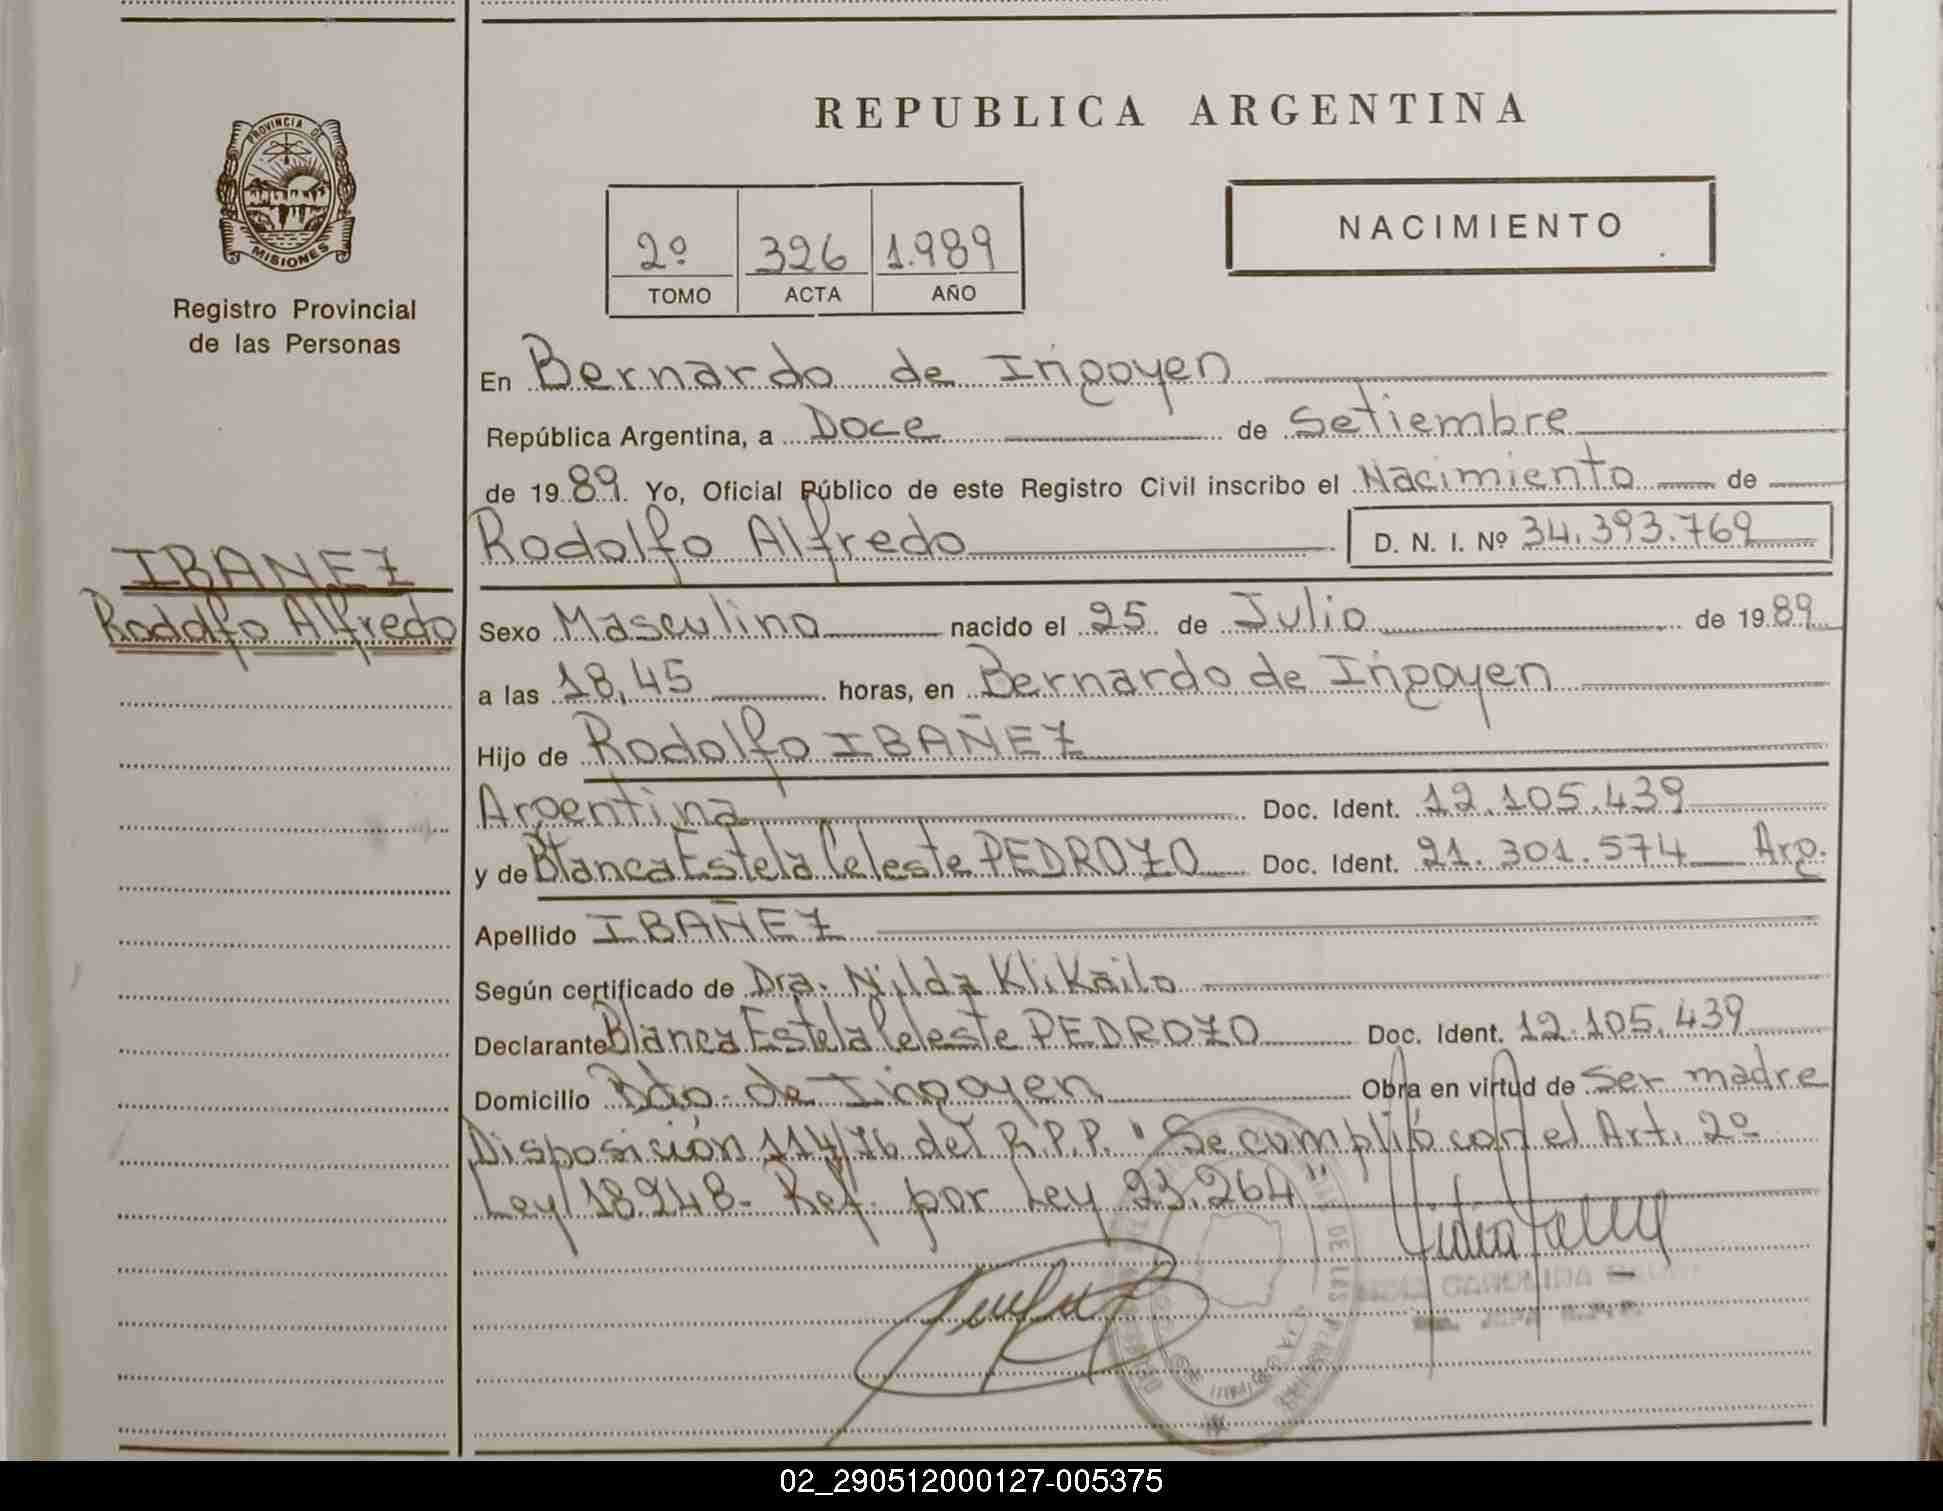 REPUBLICA ARGENTINA
PROVINCIA DE
MISIONES
Registro Provincial
de las Personas
2º 326 1.989
TOMO ACTA AÑO
NACIMIENTO
En Bernardo de Irigoyen
República Argentina, a Doce de Setiembre
de 1989. Yo, Oficial Público de este Registro Civil inscribo el Nacimiento de
Rodolfo Alfredo D. N. I. Nº 34.393.769
IBAÑEZ
Rodolfo Alfredo
Sexo Masculino nacido el 25 de Julio de 1989
a las 18,45 horas, en Bernardo de Irigoyen
Hijo de Rodolfo IBAÑEZ
Argentina Doc. Ident. 12.105.439
y de Blanca Estela Celeste PEDROZO Doc. Ident. 21.301.574 Arg.
Apellido IBAÑEZ
Según certificado de Dra. Nilda Klikailo
Declarante Blanca Estela Celeste PEDROZO Doc. Ident. 12.105.439
Domicilio Bdo. de Irigoyen Obra en virtud de Ser madre
Disposición 114/76 del R.P.P. "Se cumplió con el Art. 2º
Ley 18.248- Ref. por Ley 23.264"
CAROLINA
DE LAS PERSONAS
02_290512000127-005375